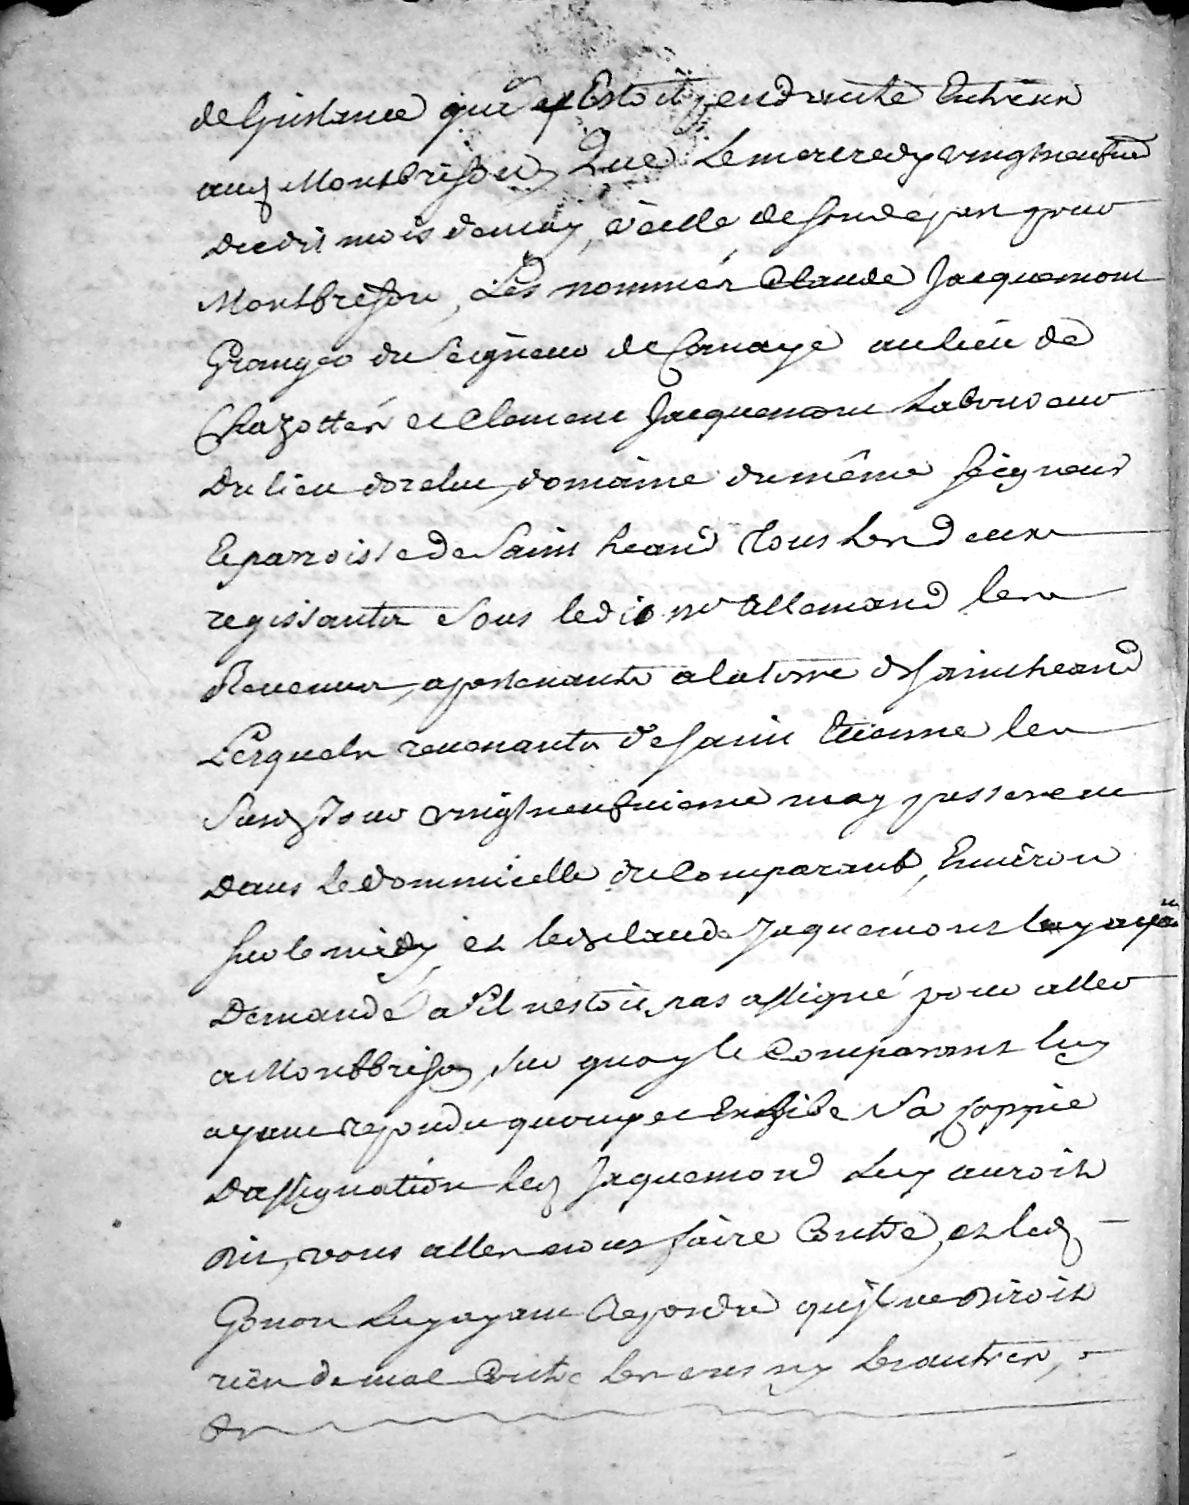 de Linstance qui Estoit pendante Entreux
aud Montbrison, Que Le mercredy vingtneufvie
dudit mois de may, veille de son depart pour
Montbrison, Les nommés Claude Jacquemont
Granger du Seigneur de Camaye au lieu de
Chazottes et Clement Jacquemont Laboureur
du lieu domaine du même seigneur
Et parroisse de Saint heand tous Les deux
regissants sous ledit mr allemand les
Revenus, apartenants a la terre de saint heand
Lesquels revenants de saint Etienne les
Susd Jour vingtneufvieme may passerent
dans le dommicille du Comparant, Environ
sur le midy, et led Claude Jaquemont luy ayant
demandé S'il n'estoit pas assigné pour aller
a Montbrison, sur quoy le Comparant luy
ayant repondu quouy et Exhibé Sa Coppie
d'assignation led Jaquemond Luy auroit
dit, vous alles nous faire Contre, et led
Gonon Luy ayant Repondu qu'il ne diroit
rien de mal Contre Les uns ny Les autres,